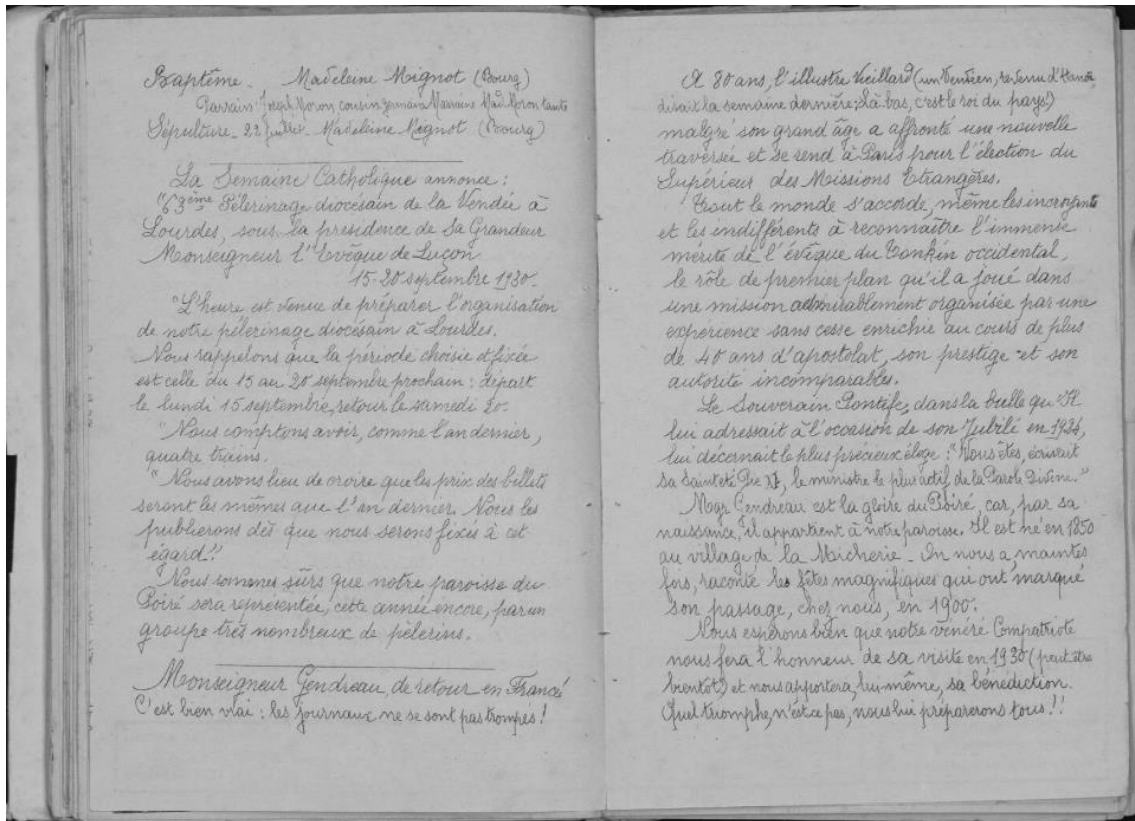 Baptême. Madeleine Mignot (Bourg)
Parrain Joseph Moron cousin germain Marraine Mad. Moron tante
Sépulture. 22 Juillet. Madeleine Mignot (Bourg)
La Semaine Catholique annonce :
"63ème Pélerinage diocésain de la Vendée à
Lourdes, sous la présidence de Sa Grandeur
Monseigneur l'Evêque de Luçon.
15-20 septembre 1930.
"L'heure est venue de préparer l'organisation
de notre pélerinage diocésain à Lourdes.
Nous rappelons que la période choisie et fixée
est celle du 15 au 20 septembre prochain : départ
le lundi 15 septembre, retour le samedi 20.
"Nous comptons avoir, comme l'an dernier,
quatre trains.
"Nous avons lieu de croire que les prix des billets
seront les mêmes que l'an dernier. Nous les
publierons dès que nous serons fixés à cet
égard."
Nous sommes sûrs que notre paroisse du
Poiré sera représentée, cette année encore, par un
groupe très nombreux de pélerins.
Monseigneur Gendreau, de retour en France
C'est bien vrai : les journaux ne se sont pas trompés !
A 80 ans, l'illustre vieillard (un Vendéen, revenu d'Hanoï
disait la semaine dernière; Là-bas, c'est le roi du pays!)
malgré son grand âge a affronté une nouvelle
traversée et se rend à Paris pour l'élection du
Supérieur des Missions Etrangères.
Tout le monde s'accorde, même les incroyants
et les indifférents à reconnaître l'immense
mérite de l'évêque du Tonkin occidental,
le rôle de premier plan qu'il a joué dans
une mission admirablement organisée par une
expérience sans cesse enrichie au cours de plus
de 40 ans d'apostolat, son prestige et son
autorité incomparables.
Le Souverain Pontife, dans la bulle qu'Il
lui adressait à l'occasion de son Jubilé en
lui décernait le plus précieux éloge : "Vous êtes, écrivait
sa Sainteté Pie XI, le ministre le plus actif de la Parole Divine."
Mgr Gendreau est la gloire du Poiré, car, par sa
naissance, il appartient à notre paroisse. Il est né en 1850
au village de la Micherie. On nous a, maintes
fois, raconté les fêtes magnifiques qui ont marqué
son passage, chez nous, en 1900.
Nous espérons bien que notre vénéré Compatriote
nous fera l'honneur de sa visite en 1930 (peut être
bientôt) et nous apportera, lui-même, sa bénédiction.
Quel triomphe, n'est ce pas, nous lui préparerons tous !!